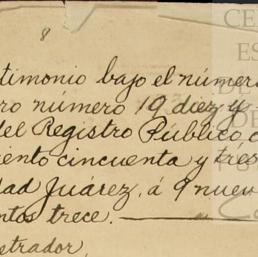 8
timonio bajo el número
ro número 19 diez y
del Registro Público d
iento cincuenta y tres
dad Juárez, á 9 nuev
ntos trece.
strador,
CE
ES
DE